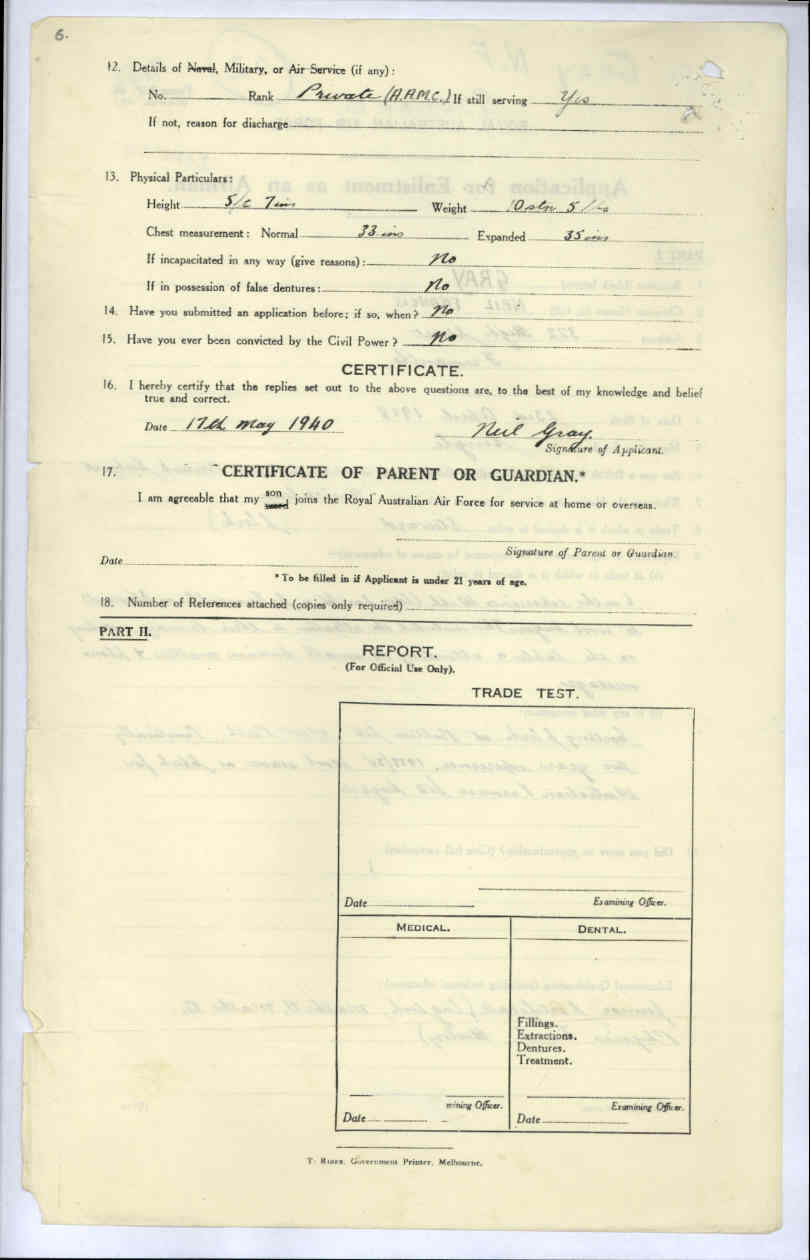 6.
12. Details of Naval, Military, or Air Service (if any):
No. Rank Private (A.A.M.C.) If still serving Yes
If not, reason for discharge
13. Physical Particulars:
Height 5ft 7ins Weight 10stn 5lbs
Chest measurement: Normal 33 ins Expanded 35 ins
If incapacitated in any way (give reasons): No
If in possession of false dentures: No
14. Have you submitted an application before; if so, when? No
15. Have you ever been convicted by the Civil Power? No
CERTIFICATE.
16. I hereby certify that the replies set out to the above questions are, to the best of my knowledge and belief
true and correct.
Date 17th May 1940 Neil Gray.
Signature of Applicant.
17. CERTIFICATE OF PARENT OR GUARDIAN.*
I am agreeable that my son ward joins the Royal Australian Air Force for service at home or overseas.
Signature of Parent or Guardian.
Date
*To be filled in if Applicant is under 21 years of age.
18. Number of References attached (copies only required)
PART II.
REPORT.
(For Official Use Only).
TRADE TEST.
Date Examining Officer.
MEDICAL. DENTAL.
Fillings.
Extractions.
Dentures.
Treatment.
mining Officer. Examining Officer.
Date Date
Government Printer, Melbourne.